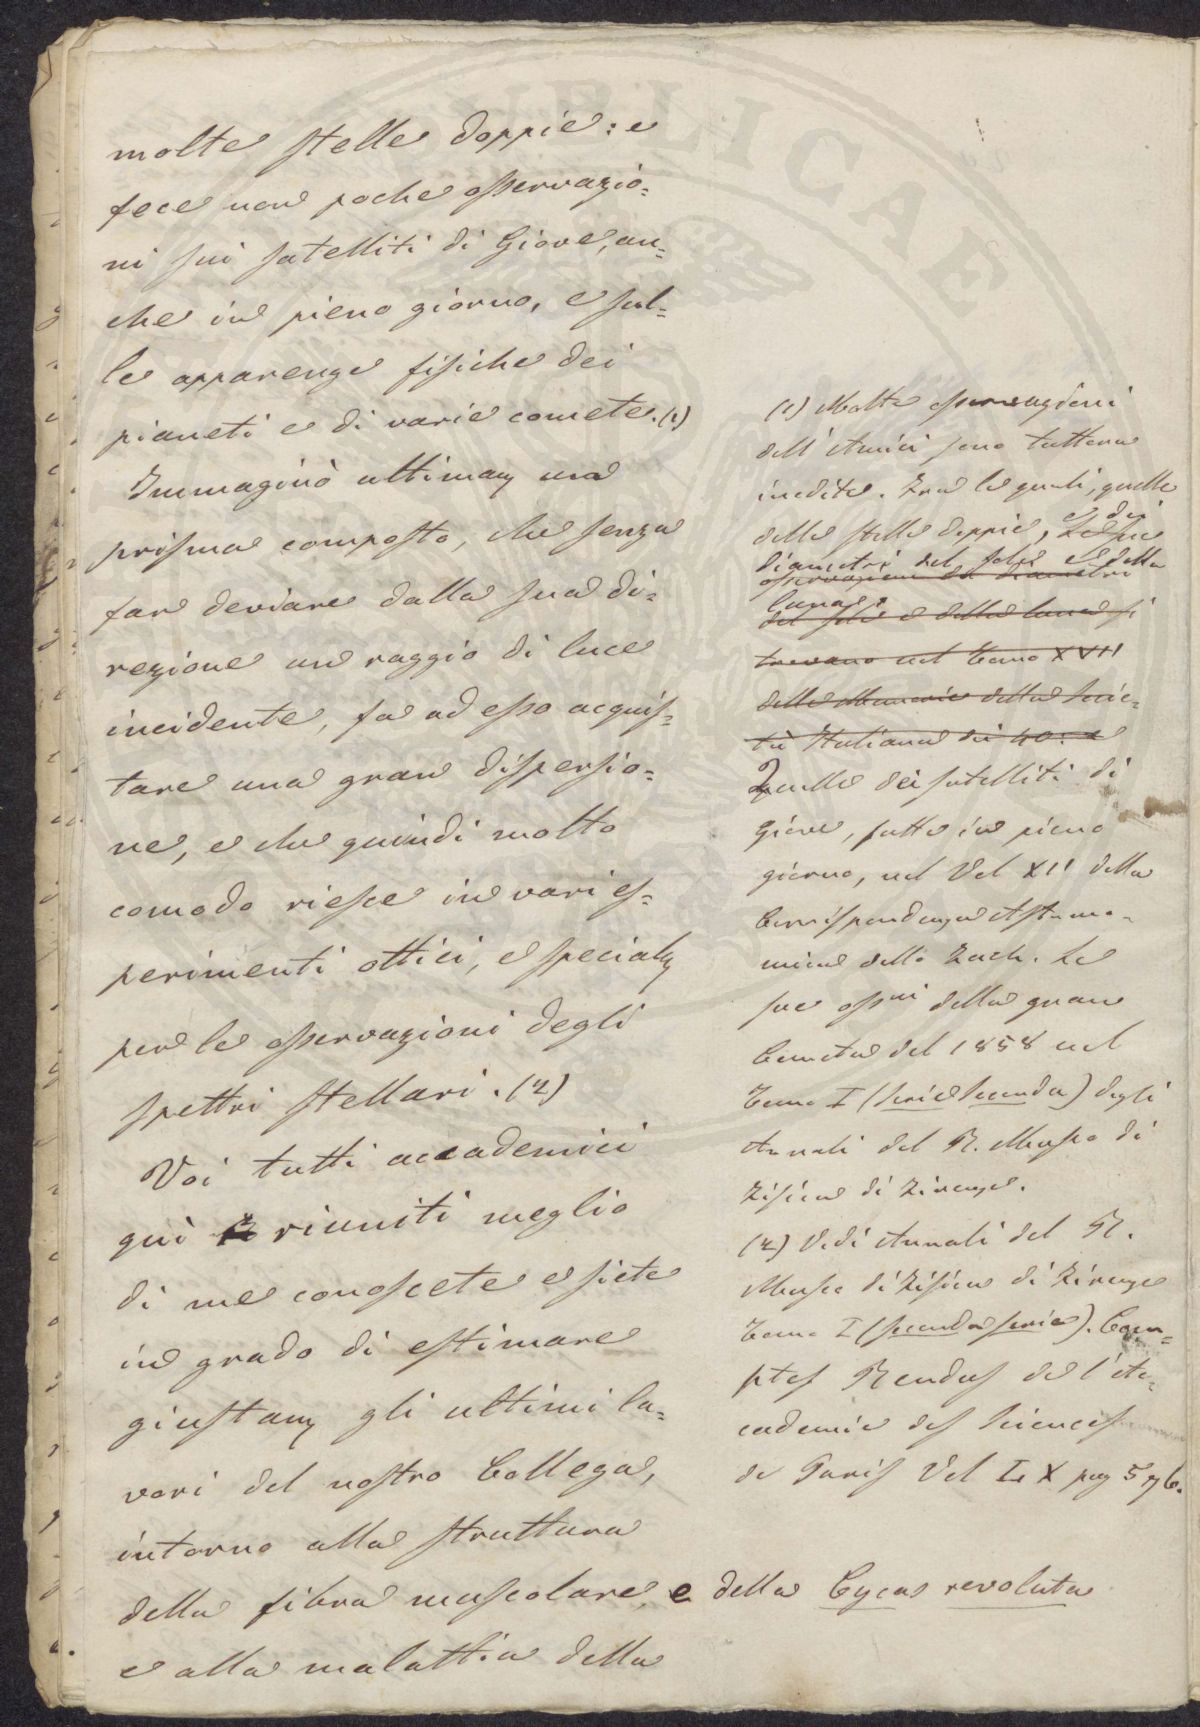 molte stelle doppie: e
fece non poche osservazio=
ni sui satelliti di Giove, an=
che in pieno giorno, e sul=
le apparenze fisiche dei
pianeti e di varie comete. (1)
Immaginò ultimam un
prisma composto, che senza
far deviare dalla sua di=
rezione un raggio di luce
incidente, fa ad esso acquis=
tare una gran dispersio=
ne, e che quindi molto
comodo riesce in vari es=
perimenti ottici, e specialm
per le osservazioni degli
spettri stellari. (2)
Voi tutti accademici
qui riuniti meglio
di me conoscete e siete
in grado di estimare
giustam gli ultimi la=
vori del nostro Collega,
intorno alla struttura
della fibra muscolare, e della Cycas revoluta
e alla malattia della
(1) Molte osservazioni
dell'Amici sono tuttora
inedite. Fra le quali, quelle
delle stelle doppie, e dei
diametri del sole e della
luna.
osservazioni dei diametri
del sole e della luna si
trovano nel Tomo XVII
delle Memorie della Socie=
tà Italiana dei 40:
Quelle dei satelliti di
Giove, fatte in pieno
giorno, nel Vol XII della
Corrispondenza Astrono=
mica dello Zach. Le
sue ossni della gran
Cometa del 1858 nel
Tomo I (serie seconda) degli
Annali del R. Museo di
Fisica di Firenze.
(2) Vedi Annali del R.
Museo di Fisica di Firenze
Tomo I (seconda serie). Com=
ptes Rendus de l'Ac=
cademie des Sciences
de Paris Vol LX pag 576.
PUBLICAE